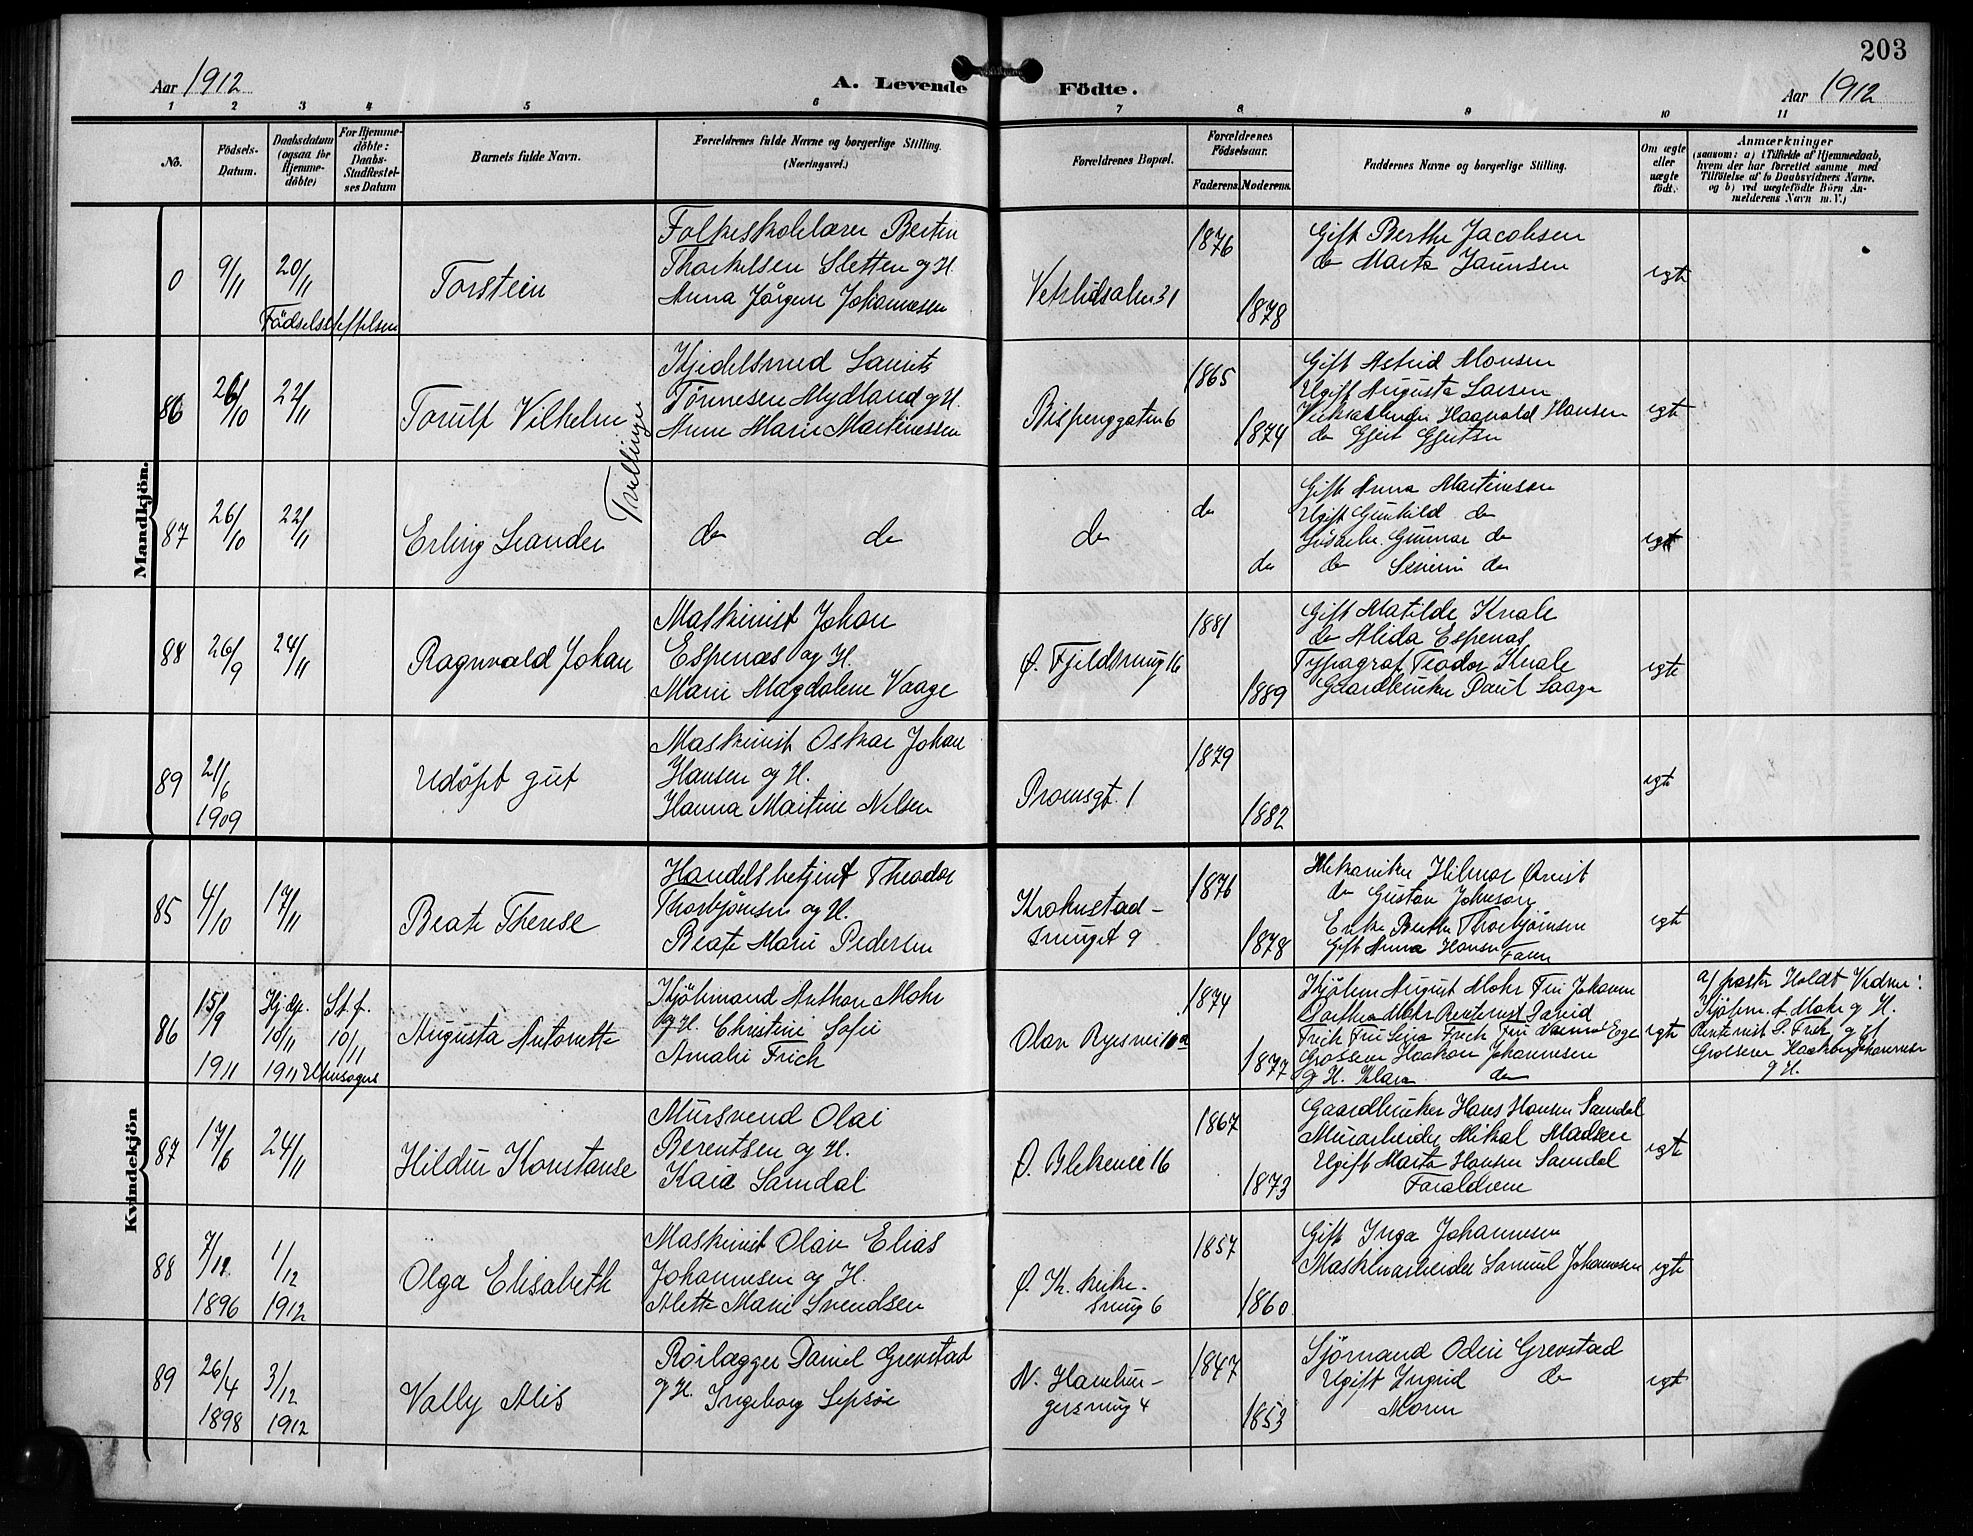 203
Aar 1912
A. Levende Fødte.
Aar 1912
1 2 3 4 5 6 7 8 9 10 11
No.
Fødsels-
Datum.
Daabsdatum
(ogsaa for
Hjemme-
døbte)
For Hjemme-
døbte:
Daabs-
Stadfæstel-
ses Datum
Barnets fulde Navn.
Forældrenes fulde Navne og borgerlige Stilling.
(Næringsvei.)
Forældrenes Bopæl.
Forældrenes
Fødselsaar.
Faderens. Moderens.
Faddernes Navne og borgerlige Stilling.
Om ægte
eller
uægte
født.
Anmærkninger
(saasom: a) i Tilfælde af Hjemmedaab,
hvem der har forrettet samme med
Tilføielse af to Daabsvidners Navne,
og b) ved uægtefødte Børn An-
melderens Navn m. V.)
Mandkjøn.
0 9/11 20/11
Torstein
Folkeskolelærer Bertin
Thorkelsen Sletten og H.
Anna Jørgine Johannesen
1876
1878
Gift Berthe Jacobsen
do Marta
egte
86 26/10 22/11
Torulf Vilhelm
Tvillinger
Lauritz
Tønnesen Mydland og H.
Anne Marie Martinessen
Bispenggaten 6
1865
1874
Gift Astrid Monsen
Ugift Augusta Larsen
Haavald Hansen
do Gjert Gjertsen
egte
87 26/10 22/11
Erling Leander
do do
do
do
do
Gift Anna Martinesen
Ugift Gunhild do
Gunnar do
do Severin do
egte
88 26/9 24/11
Ragnvald Johan
Maskinist Johan
Espenæs og H.
Marie Magdalene Vaage
Ø. Fjeldsmug 16
1881
1889
Gift Matilde Kvale
do Alida Espenæs
Typograf Teodor Kvale
Gaardbruker Paul
egte
89 21/6
1909
Udøpt gut
Maskinist Oskar Johan
Hansen og H.
Hanna Martine Nilsen
Promsgt. 1
1879
1882
egte
Kvindekjøn
85 4/10 17/11
Beate Therese
Handelsbetjent Theodor
Thorbjørnsen og H.
Beate Marie Pedersen
Krohnstad-
smuget 9
1876
1878
Mekaniker Hilmar Qvist
do Gustav Johnson
Enke Berthe Thorbjørnsen
Gift Anna Hansen Faren
egte
86 15/9
1911
Hj. dp.
10/11
1911
St. f.
10/11
Augusta Antonette
Kjøbmand Anthon Mohr
og H. Christine Sofie
Amalie Frich
Olav Ryesvei 10a
1874
1877
Kjøbm August Mohr Fru Johanne
Mohr Rentenist David
Frich Fru Frich Fru
Grosserer Haakon Johannesen
og H. Klara do
egte
a) pastor Holdt Vidner:
Kjøbm. A. Mohr og H.
Rentenist D. Frich og H
Grosserer Haakon Johannesen
og H.
87 17/6 24/11
Hildur Konstanse
Mursvend Olai
Berentsen og H.
Kaia Samdal
Ø. Blekevei 16
1867
1873
Gaardbruker Hans Hansen Samdal
Murarbeider Mikal Madsen
Ugift Marta Hansen Samdal
Foræeldrene
egte
88 7/12
1896
1/12
1912
Olga Elisabeth
Maskinist Olav Elias
Johannesen og H.
Alette Marie Svendsen
smug 6
1857
1860
Gift Inga Johannesen
Maskinarbeider Samuel Johannesen
egte
89 26/4
1898
3/12
1912
Vally Alis
Rørlægger Daniel Grevstad
og H. Ingeborg Sepsøe
N. Hambur-
gersmug 4
1847
1853
Sjømand Odin Grevstad
Ugift Ingrid do
Moren
egte